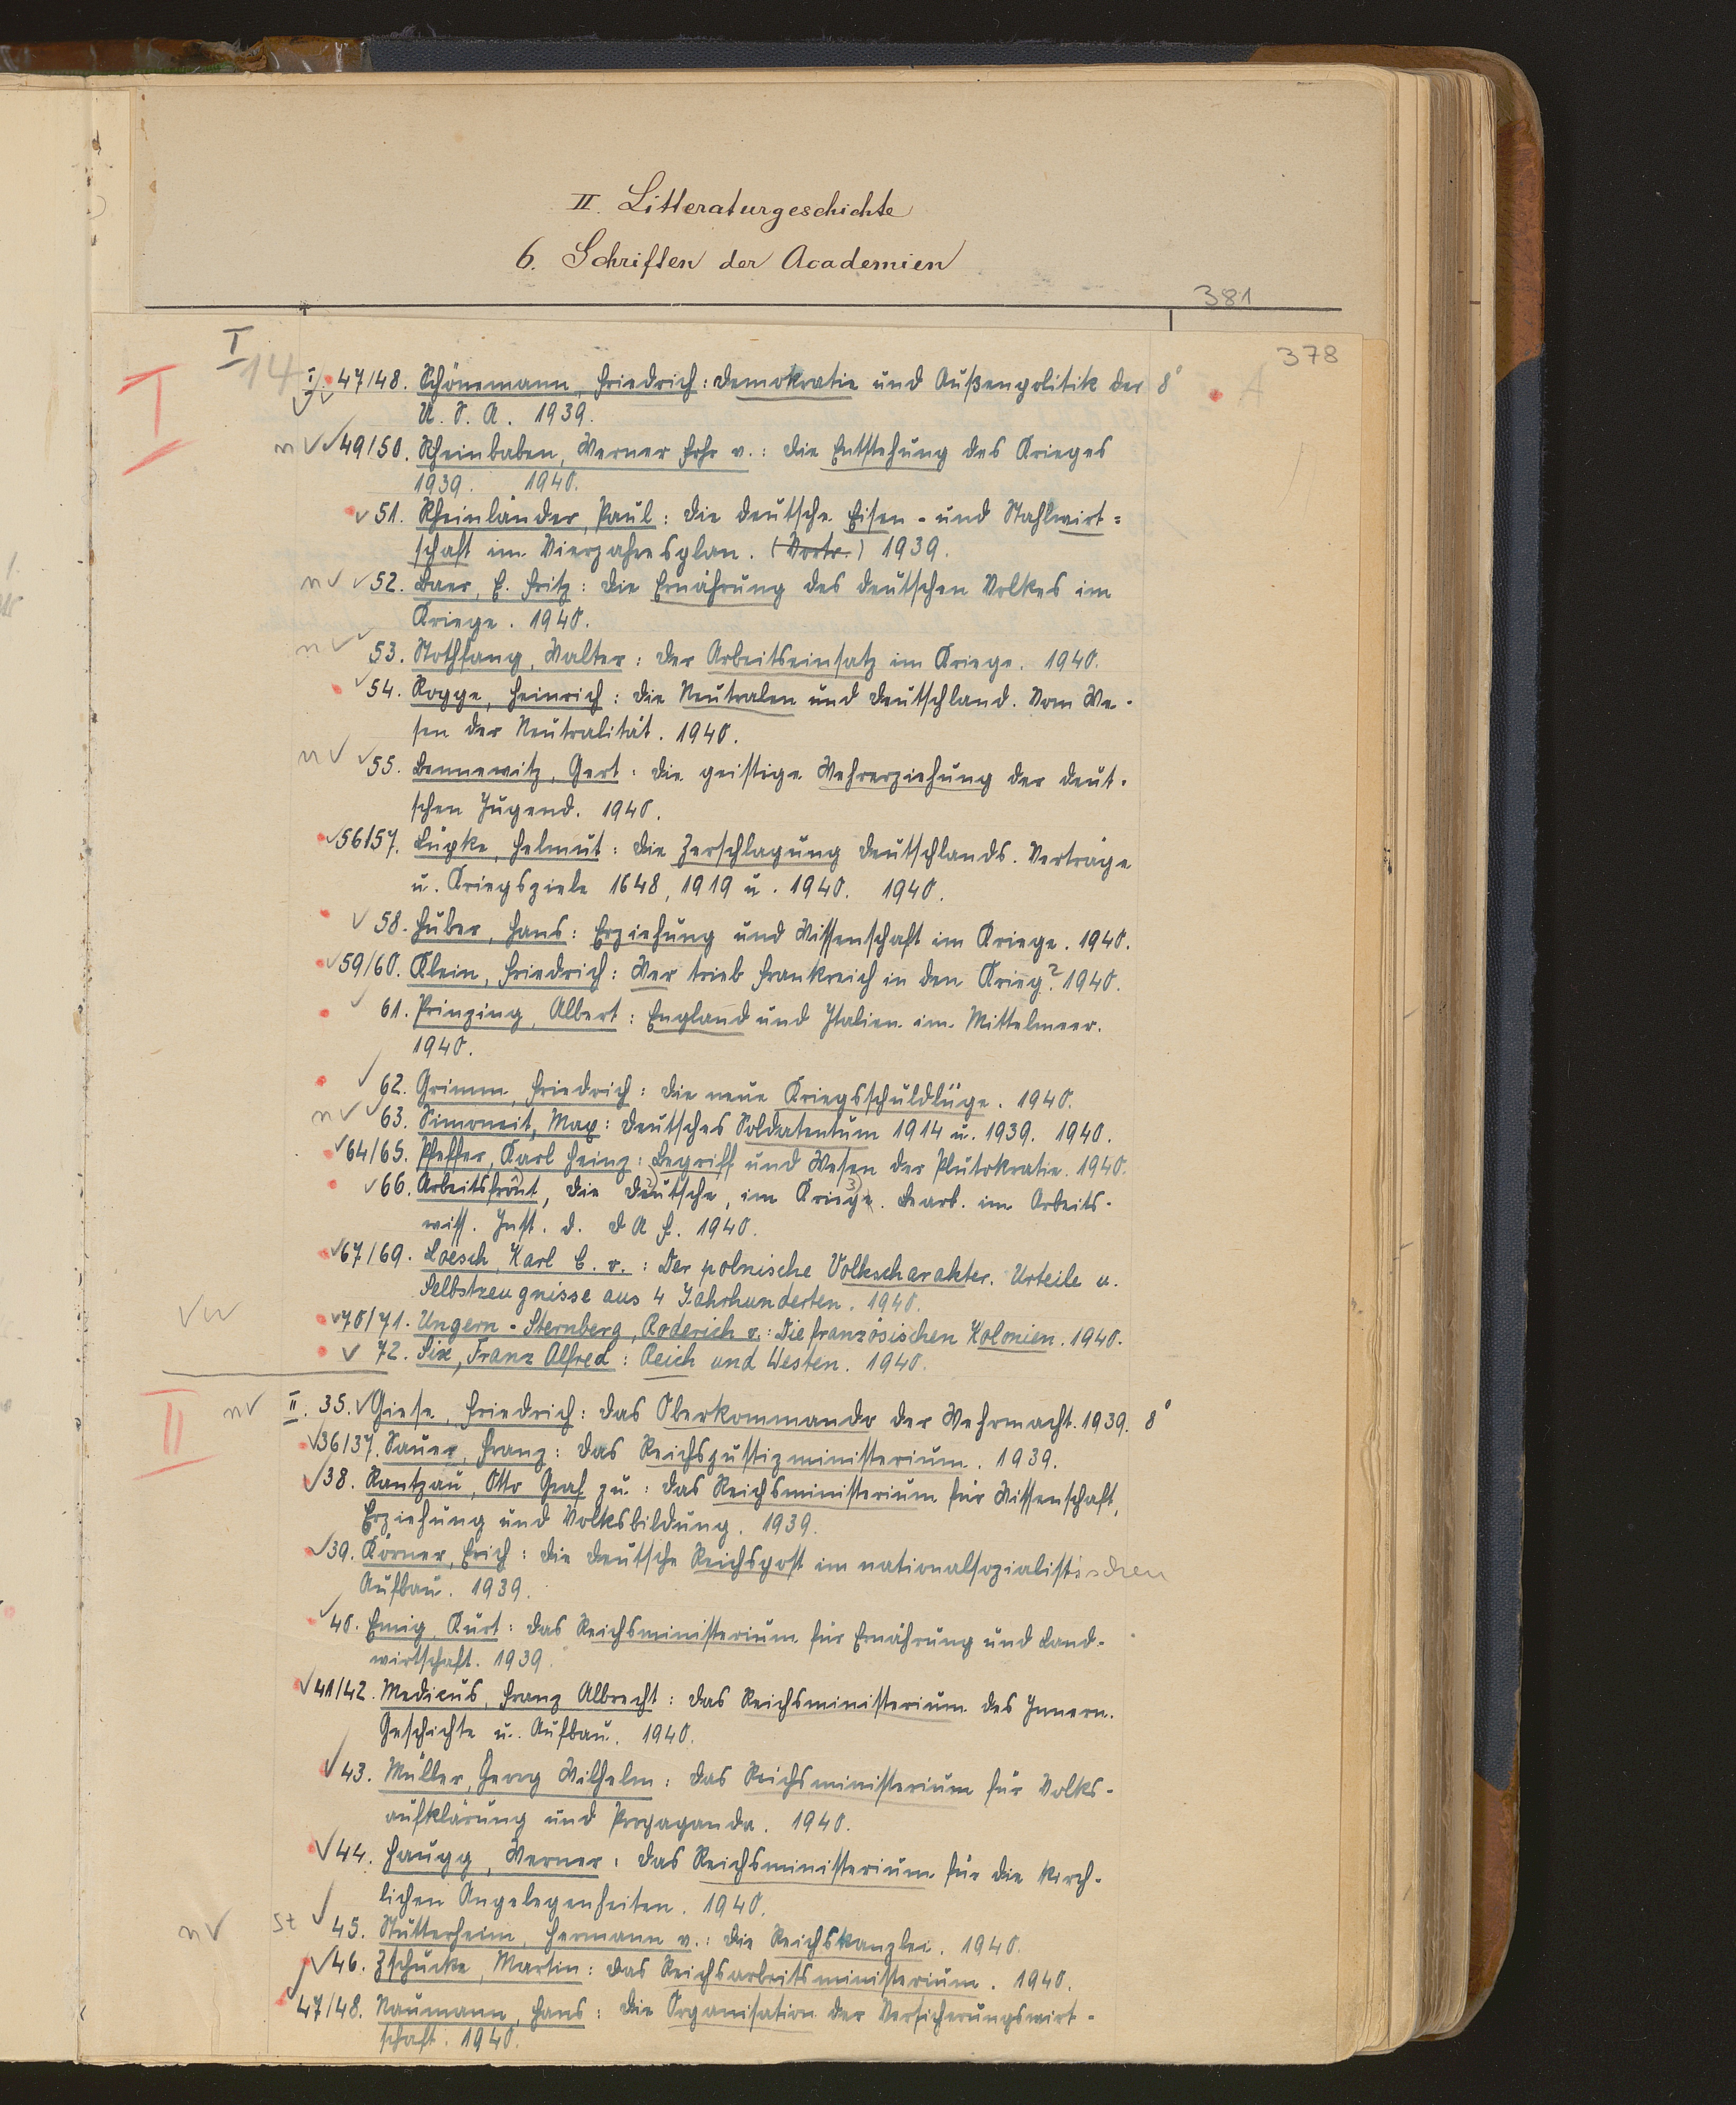 II. Litteraturgeschichte
6. Schriften der Academien
381
378
I
14
I
I. 47/48. Schönemann, Friedrich: Demokratie und Außenpolitik der 8°
U. S. A. 1939.
A
n 49/50. Rheinbaben, Werner Frhr v.: Die Entstehung des Krieges
1939. 1940.
51. Rheinländer, Paul: Die deutsche Eisen- und Stahlwirt=
schaft im Vierjahresplan. (Vortr.) 1939.
n 52. Baer, E. Fritz: Die Ernährung des deutschen Volkes im
Kriege. 1940.
n 53. Stothfang, Walter: Der Arbeitseinsatz im Kriege. 1940.
54. Rogge, Heinrich: Die Neutralen und Deutschland. Vom We-
sen der Neutralität. 1940.
n 55. Bennewitz, Gert: Die geistige Wehrerziehung der deut-
schen Jugend. 1940.
56/57. Lüpke, Helmut: Die Zerschlagung Deutschlands. Verträge
u. Kriegsziele 1648, 1919 u. 1940. 1940.
58. Huber, Hans: Erziehung und Wissenschaft im Kriege. 1940.
59/60. Klein, Friedrich: Wer trieb Frankreich in den Krieg? 1940.
61. Prinzing, Albert: England und Italien im Mittelmeer.
1940.
62. Grimm, Friedrich: Die neue Kriegsschuldlüge. 1940.
n 63. Simoneit, Max: Deutsches Soldatentum 1914 u. 1939. 1940.
64/65. Pfeffer, Karl Heinz: Begriff und Wesen der Plutokratie. 1940.
66. Arbeitsfront, Die Deutsche, im Kriege. Bearb. im Arbeits-
wiss. Inst. d. D A F. 1940.
67/69. Loesch, Karl C. v.: Der polnische Volkscharakter. Urteile u.
Selbstzeugnisse aus 4 Jahrhunderten. 1940.
70/71. Ungern-Sternberg, Roderich v.: Die französischen Kolonien. 1940.
72. Six, Franz Alfred: Reich und Westen. 1940.
II
n II. 35. Giese, Friedrich: Das Oberkommando der Wehrmacht. 1939. 8°
36/37. Sauer, Franz: Das Reichsjustizministerium. 1939.
38. Rantzau, Otto Graf zu: Das Reichsministerium für Wissenschaft,
Erziehung und Volksbildung. 1939.
39. Körner, Erich: Die Deutsche Reichspost im nationalsozialistischen
Aufbau. 1939.
40. Emig, Kurt: Das Reichsministerium für Ernährung und Land-
wirtschaft. 1939.
41/42. Medicus, Franz Albrecht: Das Reichsministerium des Innern.
Geschichte u. Aufbau. 1940.
43. Müller, Georg Wilhelm: Das Reichsministerium für Volks-
aufklärung und Propaganda. 1940.
44. Haugg, Werner: Das Reichsministerium für die kirch-
lichen Angelegenheiten. 1940.
n St 45. Stutterheim, Hermann v.: Die Reichskanzlei. 1940.
46. Zschucke, Martin: Das Reichsarbeitsministerium. 1940.
47/48. Naumann, Hans: Die Organisation der Versicherungswirt-
schaft. 1940.